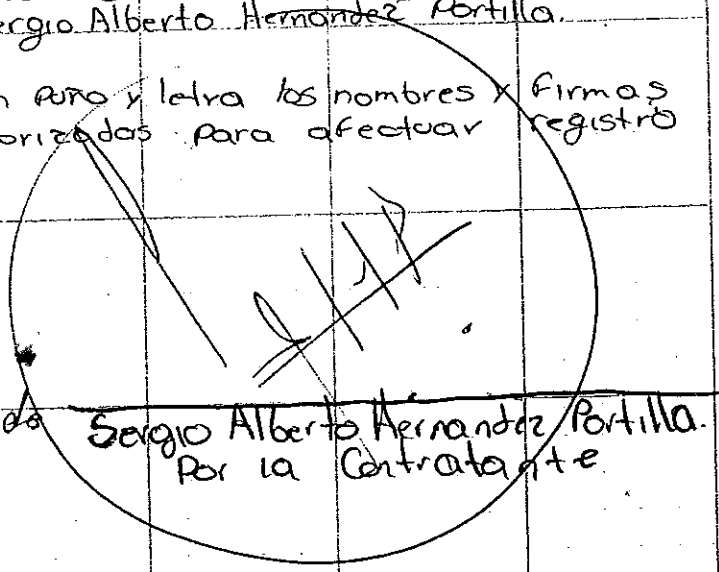 ergio Alberto Hernández Portilla.
n puño y letra los nombres y firmas
orizadas para afectuar registro
do Sergio Alberto Hernandez Portilla.
Por la Contratante